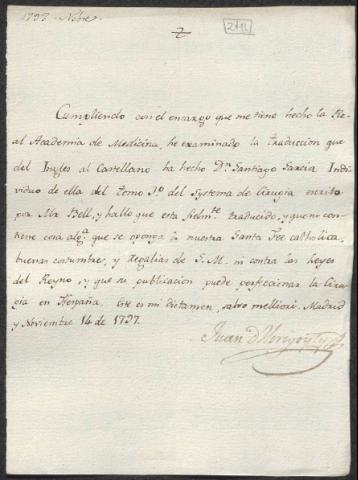 1797 - Nobre
2411
Cumpliendo con el encargo que me tiene hecho la Re-
al Academia de Medicina, he examinado la traduccion que
del Ingles al Castellano ha hecho Dn Santiago Garcia Indi-
viduo de ella del tomo 3º del Systema de Cirugia escrito
por Mr Bell, y hallo que esta fielmte traducido, y que no con-
tiene cosa alga que se oponga a nuestra Santa Fee catholica,
buenas costumbres, y Regalias de S. M. ni contra las Leyes
del Reyno, y que su publicacion puede perfeccionar la Ciru-
gia en Hespaña. Este es mi dictamen, salvo meliori. Madrid
y Noviembre 14 de 1797.
Juan